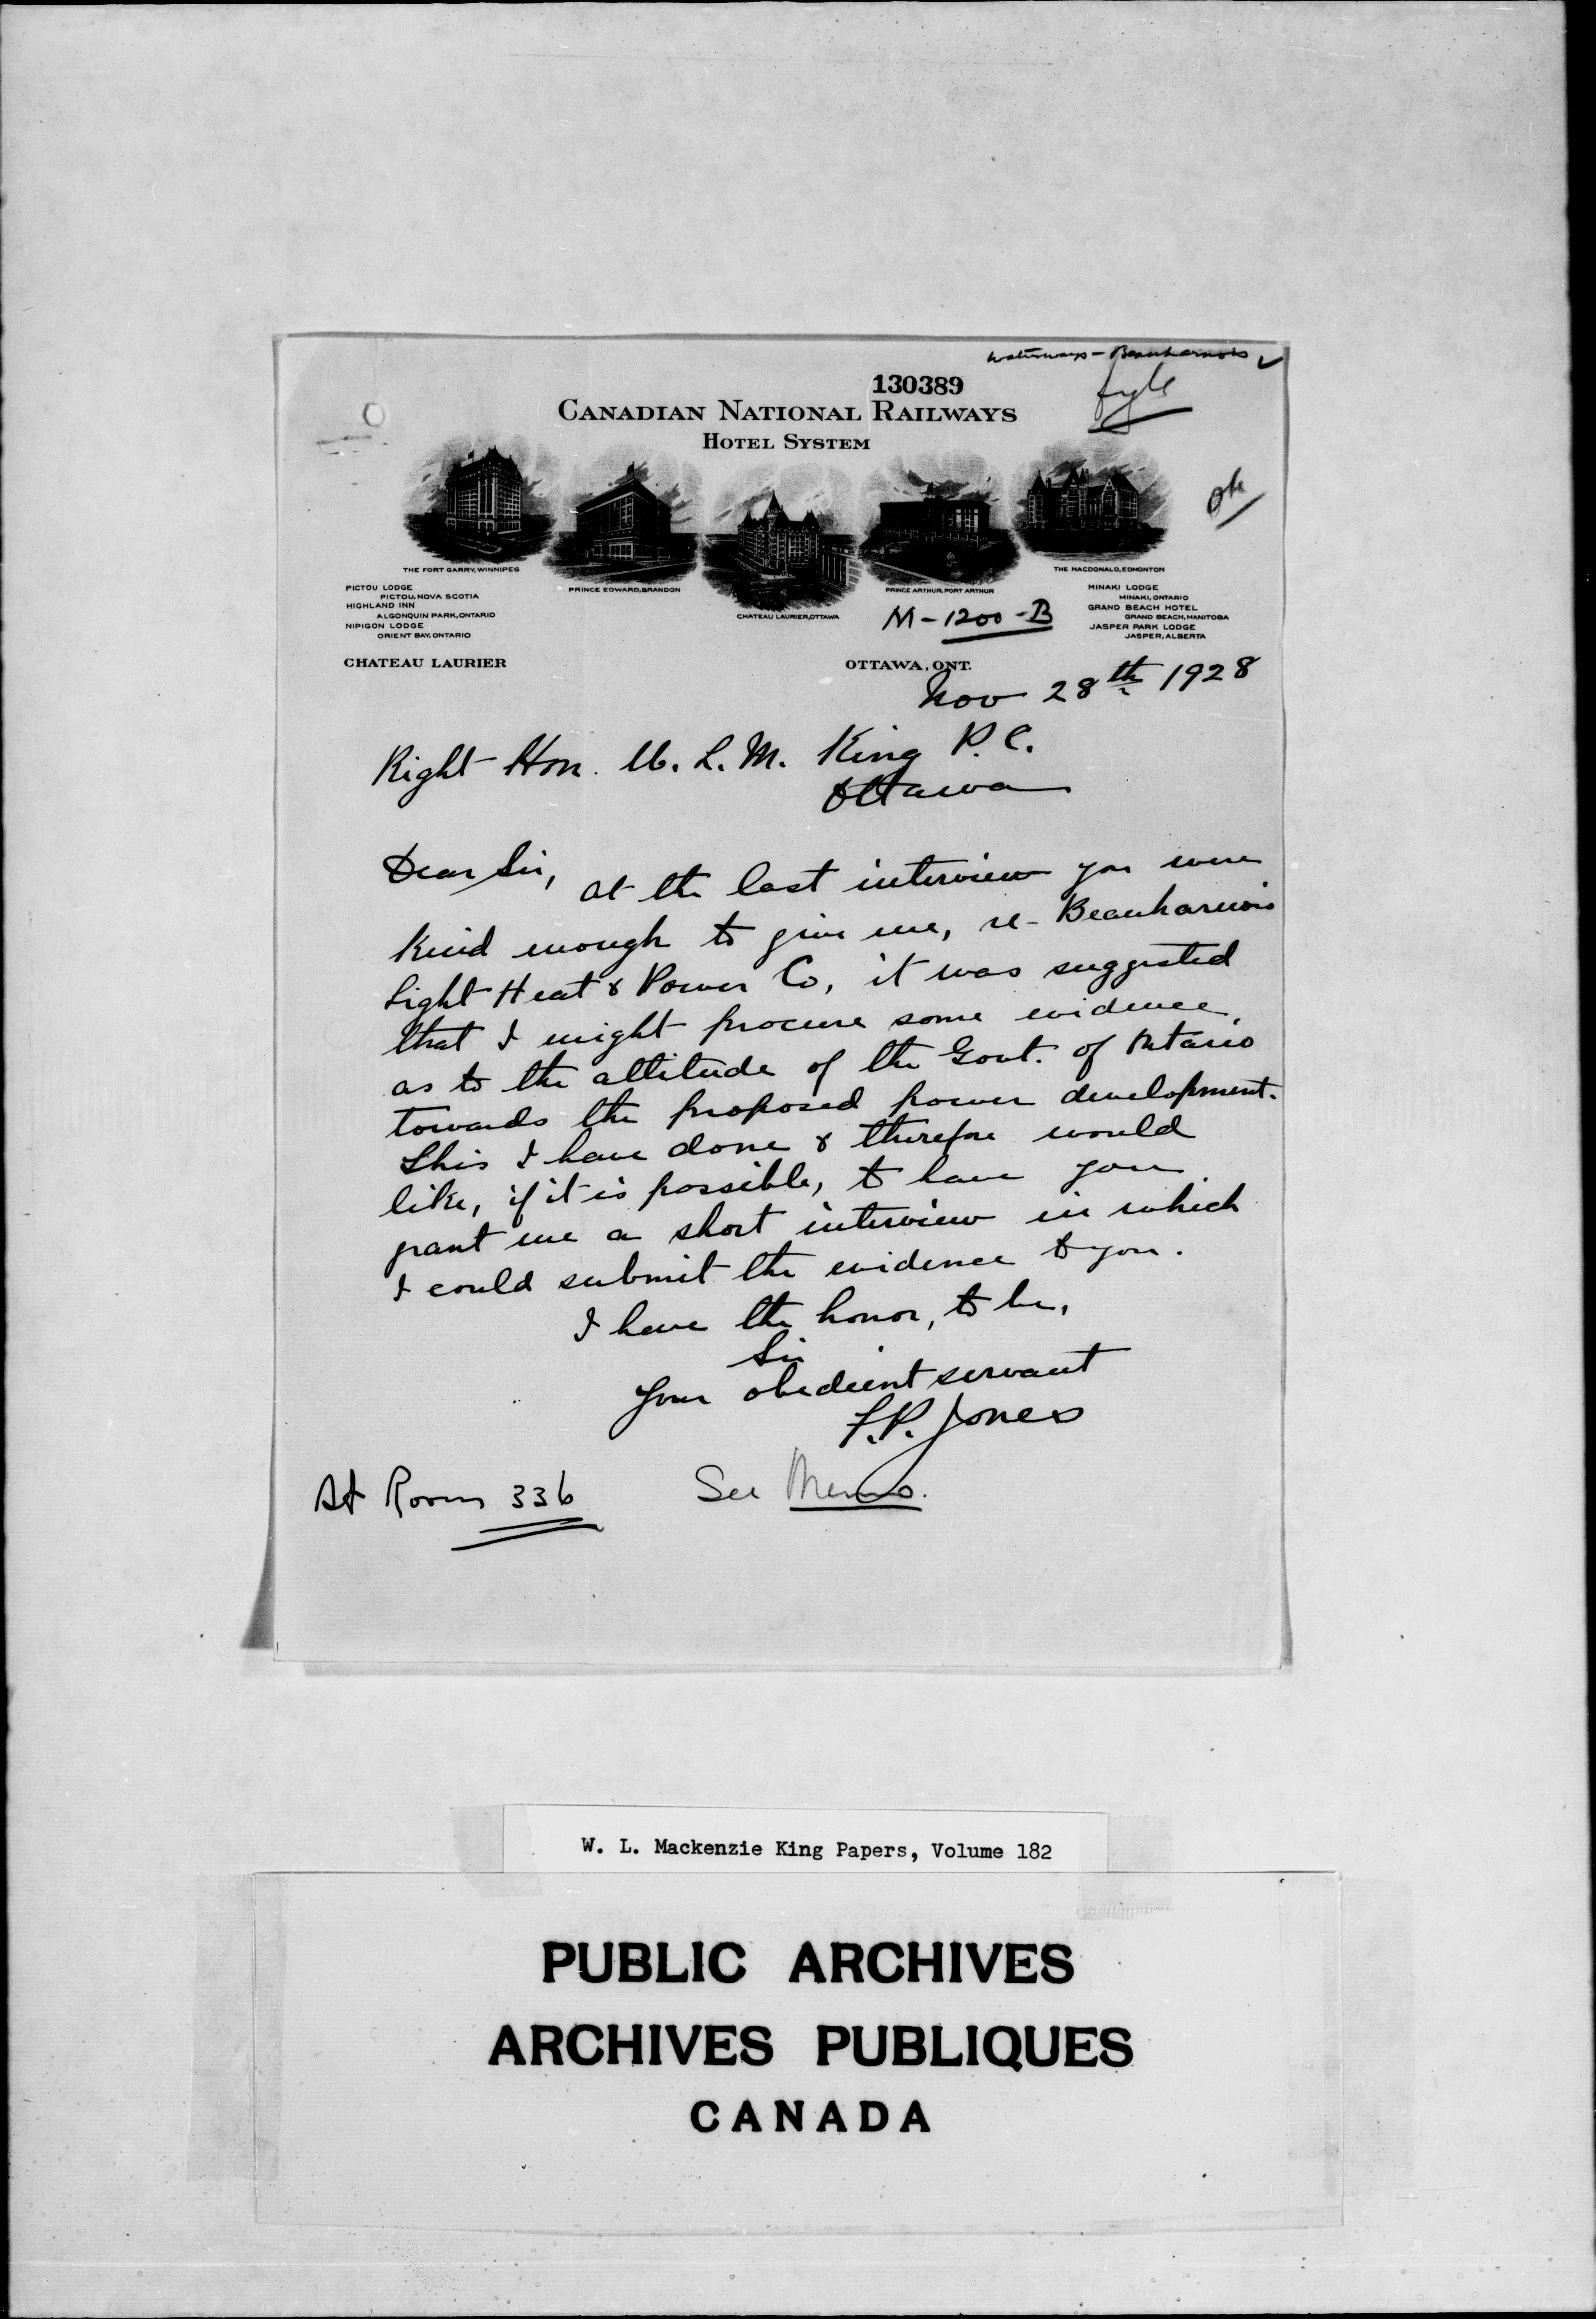 Waterways - Beauharnois ✓
130389
fyle
CANADIAN NATIONAL RAILWAYS
HOTEL SYSTEM
OK
THE FORT GARRY, WINNIPEG
PRINCE EDWARD, BRANDON
CHATEAU LAURIER, OTTAWA
PRINCE ARTHUR, PORT ARTHUR
THE MACDONALD, EDMONTON
PICTOU LODGE
PICTOU, NOVA SCOTIA
HIGHLAND INN
ALGONQUIN PARK, ONTARIO
NIPIGON LODGE
ORIENT BAY, ONTARIO
MINAKI LODGE
MINAKI, ONTARIO
GRAND BEACH HOTEL
GRAND BEACH, MANITOBA
JASPER PARK LODGE
JASPER, ALBERTA
M-1200-B
CHATEAU LAURIER
OTTAWA, ONT.
Nov 28th 1928
Right Hon. W. L. M. King P.C.
Ottawa
Dear Sir, at the last interview you were
kind enough to give me, re- Beauharnois
Light Heat & Power Co, it was suggested
that I might procure some evidence,
as to the attitude of the Govt. of Ontario
towards the proposed power development.
This I have done & therefore would
like, if it is possible, to have you
grant me a short interview in which
I could submit the evidence to you.
I have the honor, to be,
Sir
Your obedient servant
F.P. Jones
At Room 336
See Memo.
W. L. Mackenzie King Papers, Volume 182
PUBLIC ARCHIVES
ARCHIVES PUBLIQUES
CANADA